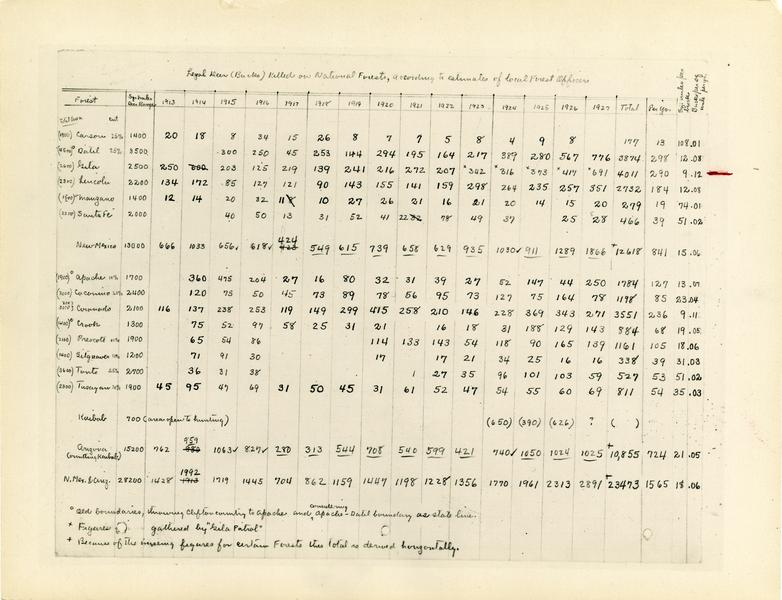 Legal Deer (Bucks) Killed on National Forests, according to estimates of local Forest Officers
Forest Sq. miles Deer Range 1913 1914 1915 1916 1917 1918 1919 1920 1921 1922 1923 1924 1925 1926 1927 Total Per yr. Sq. miles per Bucks per sq. mile per yr.
(1900) Carson 25% 1400 20 18 8 34 15 26 8 7 7 5 8 4 9 8 177 13 108 .01
Datil 25% 3500 300 250 45 253 144 294 195 164 217 389 280 567 776 3874 298 12 .08
Gila 2500 250 200 203 125 219 139 241 216 272 207 *342 *316 *373 *417 *691 4011 290 9 .12
Lincoln 2200 134 172 85 127 121 90 143 155 141 159 298 264 235 257 351 2732 184 12 .08
Manzano 1400 12 14 20 32 11 10 27 26 21 16 21 20 14 15 20 279 19 74 .01
Santa Fe 2000 40 50 13 31 52 41 22 78 49 37 25 28 466 39 51 .02
New Mexico 13000 666 1033 656 618 424 549 615 739 658 629 935 1030 911 1289 1866 +12618 841 15 .06
(1900)° Apache 1700 360 475 204 27 16 80 32 31 39 27 52 147 44 250 1784 127 13 .07
Coconino 2400 120 73 50 45 73 89 78 56 95 73 127 75 164 78 1198 85 23 .04
Coronado 2100 116 137 238 253 119 149 299 415 258 210 146 228 369 343 271 3551 236 9 .11
Crook 1300 75 52 97 58 25 31 21 16 18 31 188 129 143 884 68 19 .05
Prescott 1900 65 54 86 114 133 143 54 118 90 165 139 1161 105 18 .06
Sitgreaves 1200 71 91 30 17 17 21 34 25 16 16 338 39 31 .03
Tonto 25% 2700 36 31 38 1 27 35 96 101 103 59 527 53 51 .02
Tusayan 1900 45 95 47 69 31 50 45 31 61 52 47 54 55 60 69 811 54 35 .03
Kaibab 700 (area open to hunting) (650) (390) (626) ? ( )
Arizona (omitting Kaibab) 15200 762 959 1063 827 280 313 544 708 540 599 421 740 1050 1024 1025 +10,855 724 21 .05
N. Mex. & Ariz. 28200 1428 1992 1719 1445 704 862 1159 1447 1198 1228 1356 1770 1961 2313 2891 +23473 1565 18 .06
° Used boundaries, throwing Clifton country to Apache and considering Apache-Datil boundary as state line.
* Figures ( ) gathered by "Gila Patrol"
+ Because of the missing figures for certain Forests this total is derived horizontally.